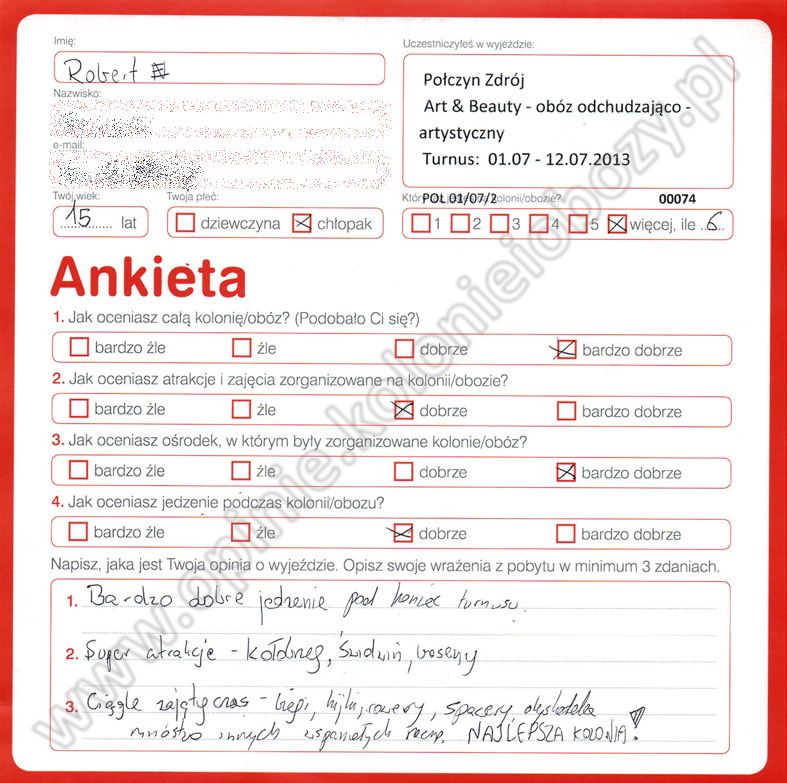 Imię:
Robert
Nazwisko:
e-mail:
Uczestniczyłeś w wyjeździe:
Połczyn Zdrój
Art & Beauty - obóz odchudzająco -
artystyczny
Turnus: 01.07 - 12.07.2013
Twój wiek:
15 lat
Twoja płeć:
dziewczyna chłopak
POL 01/07/2 kolonii/obozie? 00074
1 2 3 4 5 więcej, ile ..6..
Ankieta
1. Jak oceniasz całą kolonię/obóz? (Podobało Ci się?)
bardzo źle źle dobrze bardzo dobrze
2. Jak oceniasz atrakcje i zajęcia zorganizowane na kolonii/obozie?
bardzo źle źle dobrze bardzo dobrze
3. Jak oceniasz ośrodek, w którym były zorganizowane kolonie/obóz?
bardzo źle źle dobrze bardzo dobrze
4. Jak oceniasz jedzenie podczas kolonii/obozu?
bardzo źle źle dobrze bardzo dobrze
Napisz, jaka jest Twoja opinia o wyjeździe. Opisz swoje wrażenia z pobytu w minimum 3 zdaniach.
1. Bardzo dobre jedzenie pod koniec turnusu.
2. Super atrakcje - kołobrzeg, Świdwin, baseny
3. Ciągle zajęty czas - kijki, rowery, spacery, dyskoteka
mnóstwo innych wspaniałych NAJLEPSZA KOLONIA!
www.opinie.kolonieiobozy.pl